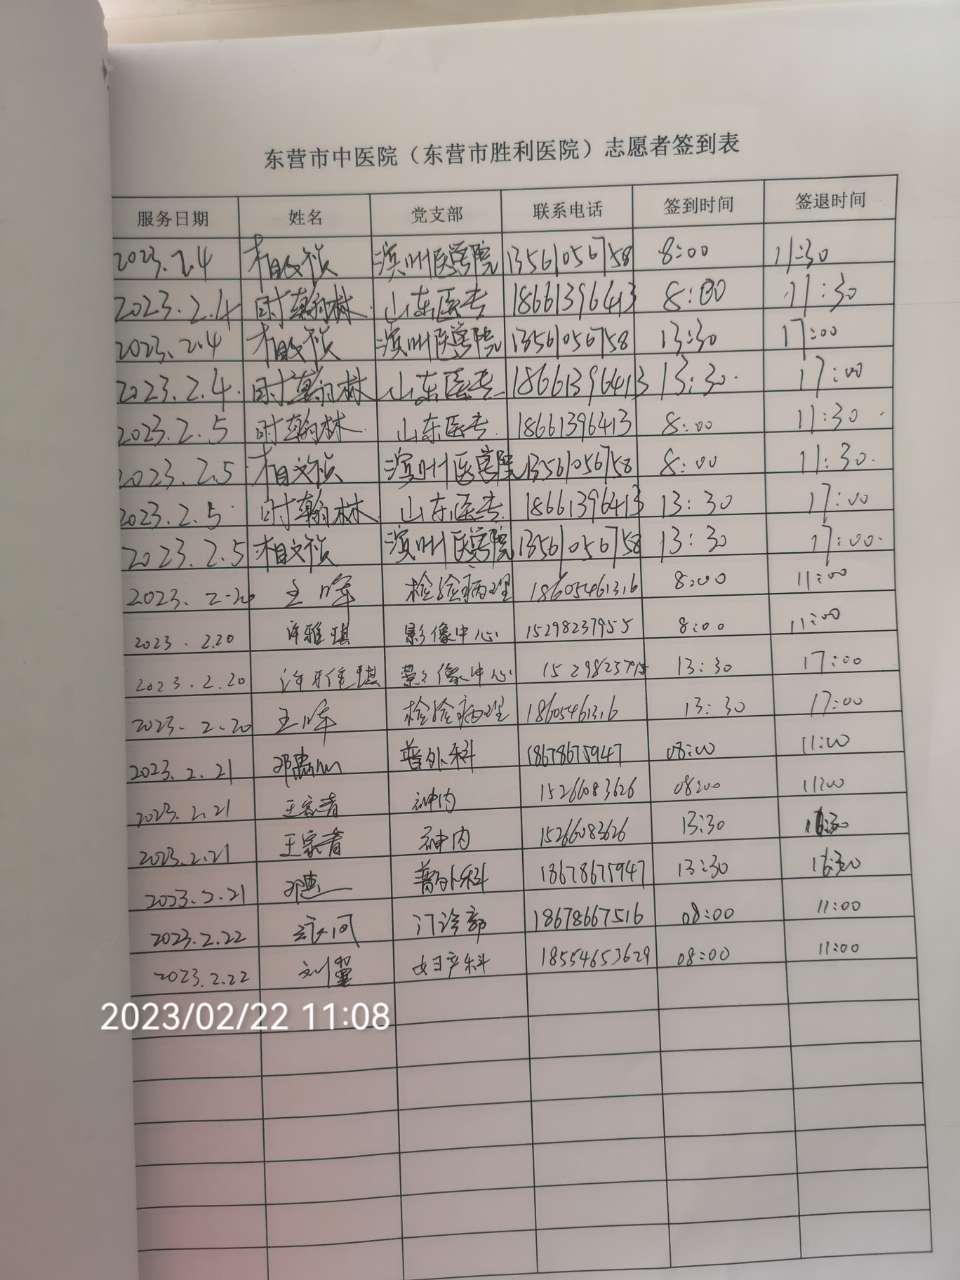 东营市中医院（东营市胜利医院）志愿者签到表
服务日期 姓名 党支部 联系电话 签到时间 签退时间
2023.2.4 相文祯 滨州医学院 13561056758 8:00 11:30
2023.2.4 时翰林 山东医专 18661396413 8:00 11:30
2023.2.4 相文祯 滨州医学院 13561056758 13:30 17:00
2023.2.4 时翰林 山东医专 18661396413 13:30 17:00
2023.2.5 时翰林 山东医专 18661396413 8:00 11:30
2023.2.5 相文祯 滨州医学院 13561056758 8:00 11:30
2023.2.5 时翰林 山东医专 18661396413 13:30 17:00
2023.2.5 相文祯 滨州医学院 13561056758 13:30 17:00
2023.2.20 王晖 检验病理 18605461316 8:00 11:00
2023.2.20 许雅琪 影像中心 15298237955 8:00 11:00
2023.2.20 许雅琪 影像中心 13:30 17:00
2023.2.20 王晖 检验病理 18605461316 13:30 17:00
2023.2.21 普外科 18678675947 08:00 11:00
2023.2.21 王家青 神内 15266083626 08:00 11:00
2023.2.21 王家青 神内 15266083626 13:30 16:30
2023.2.21 普外科 18678675947 13:30 16:30
2023.2.22 门诊部 18678667516 08:00 11:00
2023.2.22 妇产科 18554653629 08:00 11:00
2023/02/22 11:08